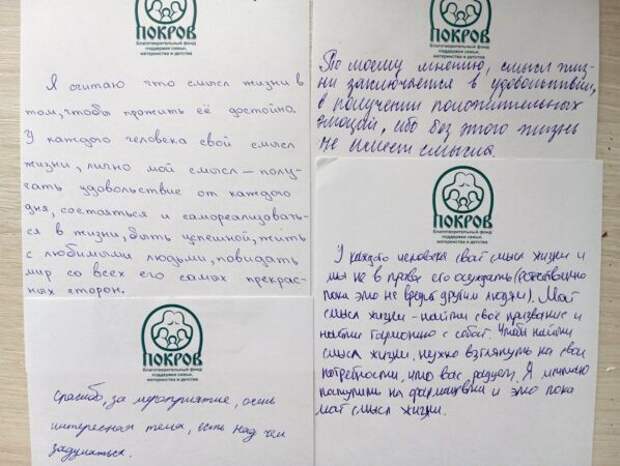 ПОКРОВ
Благотворительный фонд
поддержки семьи,
материнства и детства
Я считаю что смысл жизни в
том, чтобы прожить её достойно.
У каждого человека свой смысл
жизни, лично мой смысл – полу-
чать удовольствие от каждого
дня, состояться и самореализовать-
ся в жизни, быть успешной, жить
с любимыми людьми, повидать
мир со всех его самых прекрас-
ных сторон.
По моему мнению, смысл жиз-
ни заключается в удовольствии,
в получении положительных
эмоций, ибо без этого жизнь
не имеет смысла.
ПОКРОВ
Благотворительный фонд
поддержки семьи,
материнства и детства
У каждого человека свой смысл жизни и
мы не в праве его осуждать (естественно
пока это не вредит другим людям). Мой
смысл жизни – найти своё призвание и
найти гармонию с собой. Чтобы найти
смысл жизни, нужно взглянуть на свои
потребности, что вас радует. Я
поступила на и это пока
мой смысл жизни.
ПОКРОВ
Благотворительный фонд
поддержки семьи,
материнства и детства
Спасибо, за мероприятие, очень
интересная тема, есть над чем
задуматься.